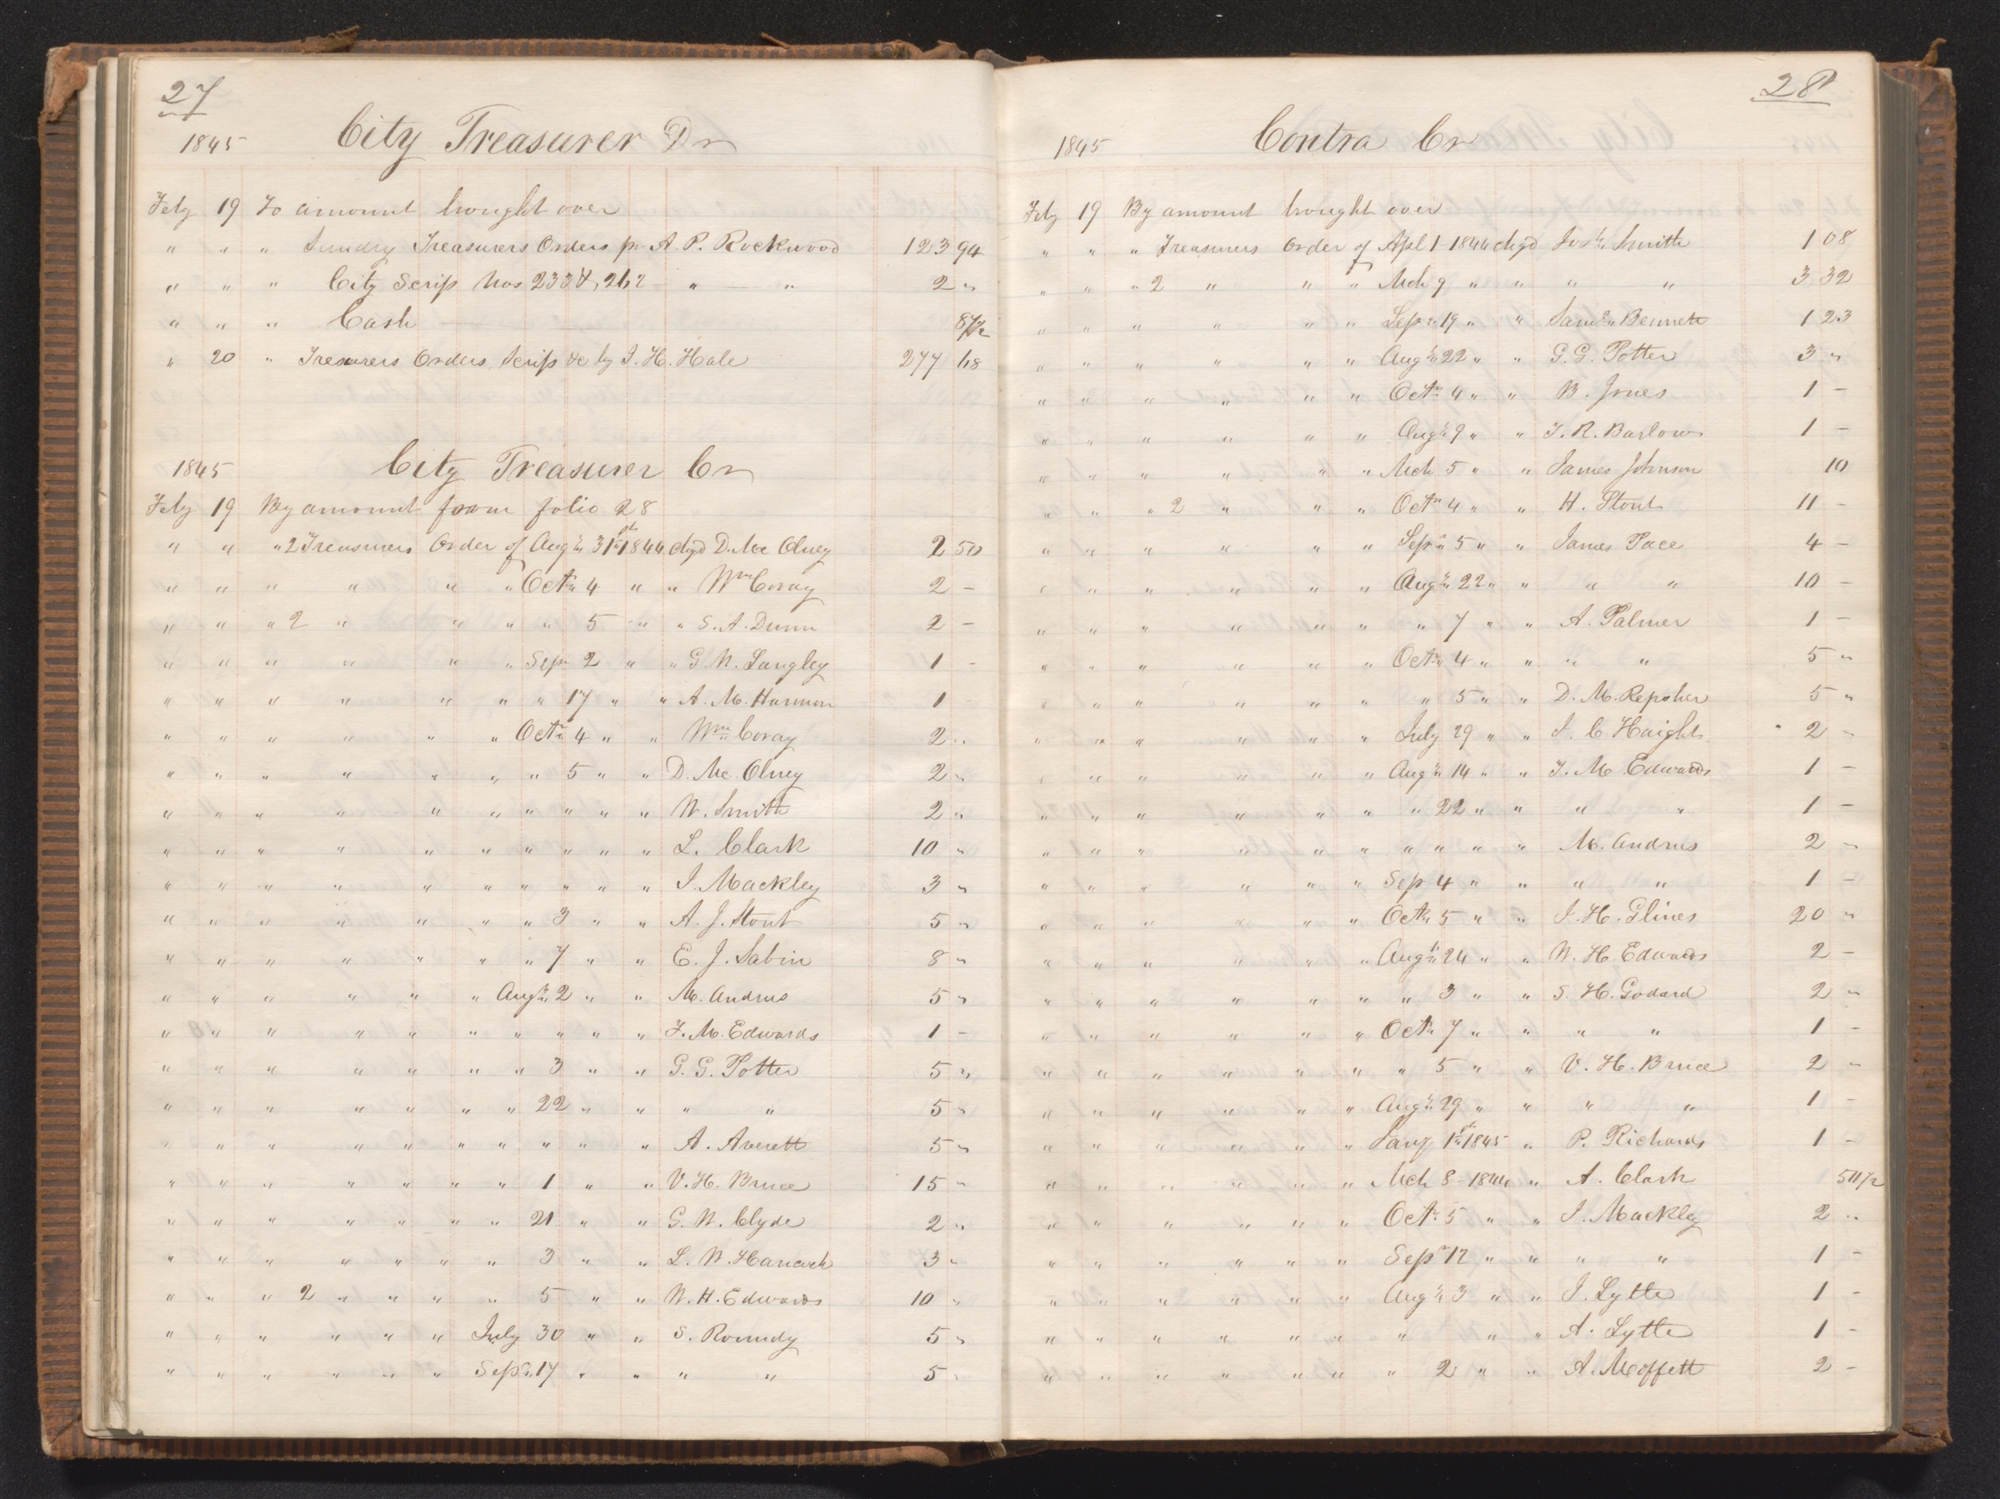 27
1845 City Treasurer Dr
Feby 19 To amount brought over
" " " Sundry Treasurers Orders pr A. P. Rockwood 123 94
" " " City Scrip Nos 262 " " 2 "
" " " Cash 87½
" 20 " Tresurers Orders, Scrip &c by J. H. Hale 277 68
1845 City Treasurer Cr
Feby 19 By amount from folio 28
" " " 2 Treasurers Order of Augt 31st 1844 chgd D. Mc Olney 2 50
" " " " " " Octr 4 " " Wm Coray 2 -
" " " 2 " " " " 5 " " S. A. Dunn 2 -
" " " " " " Sepr 2 " " G. W. Langley 1 -
" " " " " " " 17 " " A. M. Harmon 1 -
" " " " " " Octr 4 " " Wm Coray 2 "
" " " " " " " 5 " " D. Mc. Olney 2 "
" " " " " " " " " " W. Smith 2 "
" " " " " " " " " " L. Clark 10 "
" " " " " " " " " " J. Mackley 3 "
" " " " " " " 3 " " A. J. Stout 5 "
" " " " " " " 7 " " E. J. Sabin 8 "
" " " " " " Augt 2 " " M. Andrus 5 "
" " " " " " " " " " F. M. Edwards 1 -
" " " " " " " 3 " " G. G. Potter 5 "
" " " " " " " 22 " " " " 5 "
" " " " " " " " " " A. Averett 5 "
" " " " " " " 1 " " V. H. Bruce 15 "
" " " " " " " 21 " " G. W. Clyde 2 "
" " " " " " " 3 " " L. W. Hancock 3 "
" " " 2 " " " " 5 " " W. H. Edwards 10 "
" " " " " " July 30 " " S. Roundy 5 "
" " " " " " Sepr 17 " " " " 5 "
28
1845 Contra Cr
Feby 19 By amount brought over
" " " Treasurers Order of Apl 1 1844 chgd Josh Smith 1 08
" " " 2 " " " Mch 9 " " " " 3 32
" " " " " " Sepr 19 " " Saml Bennett 1 23
" " " " " " Augt 22 " " G. G. Potter 3 "
" " " " " " Octr 4 " " B. Jones 1 -
" " " " " " Augt 9 " " I. R. Barlow 1 -
" " " " " " Mch 5 " " James Johnson 10
" " " 2 " " " Octr 4 " " H. Stout 11 -
" " " " " " Sepr 5 " " James Pace 4 -
" " " " " " Augt 22 " " " " 10 -
" " " " " " " 7 " " A. Palmer 1 -
" " " " " " Octr 4 " " " " 5 "
" " " " " " " 5 " " D. M. Repsher 5 "
" " " " " " July 29 " " I. C Haight 2 -
" " " " " " Augt 14 " " F. M. Edwards 1 -
" " " " " " " 22 " " " " 1 -
" " " " " " " " " " M. Andrus 2 -
" " " " " " Sep 4 " " " " 1 -
" " " " " " Octr 5 " " J. H. Glines 20 "
" " " " " " Augt 24 " " W. H. Edwards 2 -
" " " " " " " 3 " " S. H. Godard 2 "
" " " " " " Octr 7 " " " " 1 -
" " " " " " " 5 " " V. H. Bruce 2 -
" " " " " " Augt 29 " " " " 1 -
" " " " " " Jany 1st 1845 " P. Richards 1 -
" " " " " " Mch 8 - 1844 " A. Clark
" " " " " " Octr 5 " " J. Mackley 2 "
" " " " " " Sepr 12 " " " " 1 -
" " " " " " Augt 3 " " J. Lytle 1 -
" " " " " " " " " A. Lytle 1 -
" " " " " " " 2 " " A. Moffett 2 -